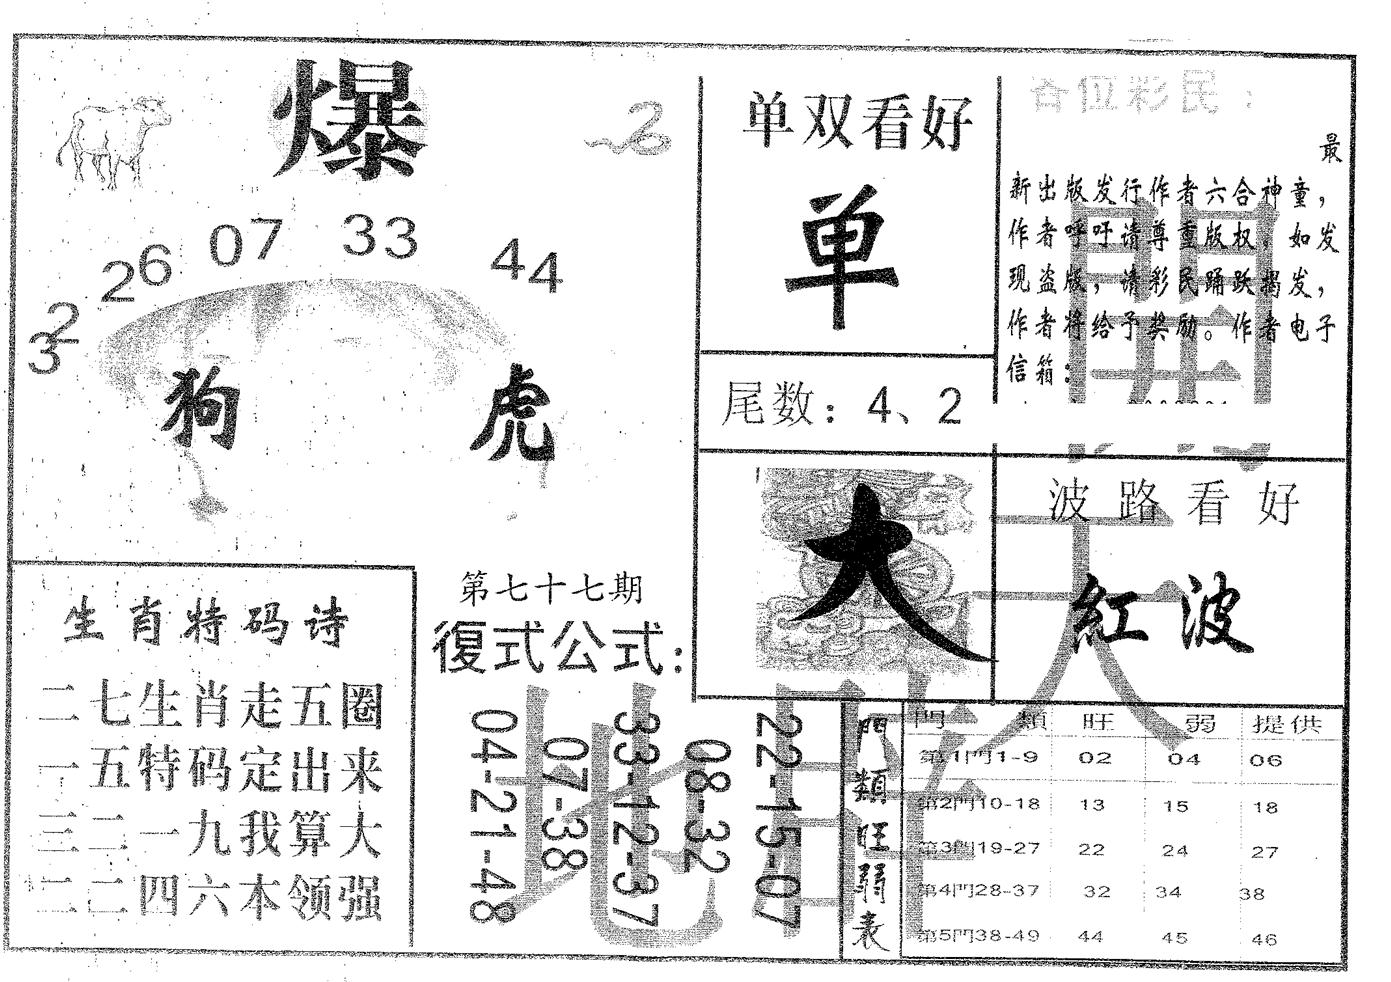 爆
2
32
26
07
33
44
狗
虎
单双看好
单
尾数：4、2
各位彩民：
最
新出版发行作者六合神童，
作者呼吁请尊重版权。如发
现盗版，请彩民踊跃揭发，
作者将给予奖励。作者电子
信箱：
大
波路看好
紅波
開
天
地
生肖特码诗
二七生肖走五圈
一五特码定出来
三二一九我算大
二二四六本领强
第七十七期
復式公式：
04-21-48
07-38
33-12-37
08-32
22-15-07
門類旺弱表
門類 旺 弱 提供
第1門1-9 02 04 06
第2門10-18 13 15 18
第3門19-27 22 24 27
第4門28-37 32 34 38
第5門38-49 44 45 46